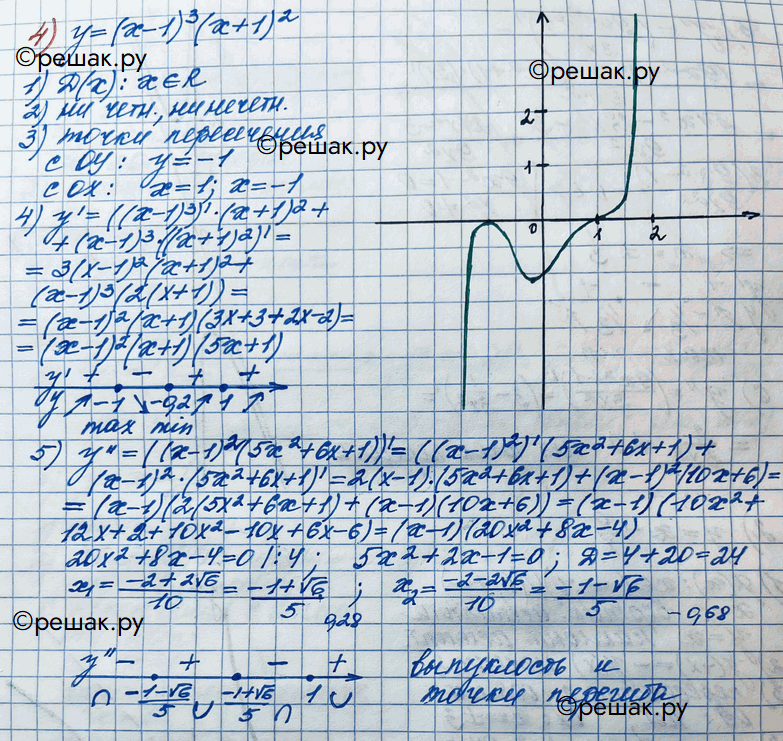 4) y = (x-1)³(x+1)²
©решак.ру
©решак.ру
1) D(x): x∈R
2) ни четн., ни нечетн.
3) точки пересечения
©решак.ру
с OY: y=-1
с OX: x=1; x=-1
4) y' = ((x-1)³)'·(x+1)² +
+ (x-1)³·((x+1)²)' =
= 3(x-1)²(x+1)² +
(x-1)³(2(x+1)) =
= (x-1)²(x+1)(3x+3+2x-2) =
= (x-1)²(x+1)(5x+1)
y' + - + +
y ↗ -1 ↘ -0,2 ↗ 1 ↗
max min
2
1
0 1 2
5) y'' = ((x-1)²(5x²+6x+1))' = ((x-1)²)'(5x²+6x+1) +
(x-1)²·(5x²+6x+1)' = 2(x-1)·(5x²+6x+1) + (x-1)²(10x+6) =
= (x-1)(2(5x²+6x+1) + (x-1)(10x+6)) = (x-1)(10x² +
12x+2+10x²-10x+6x-6) = (x-1)(20x²+8x-4)
20x²+8x-4=0 |:4; 5x²+2x-1=0; D=4+20=24
x₁ = (-2+2√6)/10 = (-1+√6)/5 0,28; x₂ = (-2-2√6)/10 = (-1-√6)/5 -0,68
©решак.ру
y'' - + - +
∩ (-1-√6)/5 ∪ (-1+√6)/5 ∩ 1 ∪
выпуклость и
точки перегиба
©решак.ру